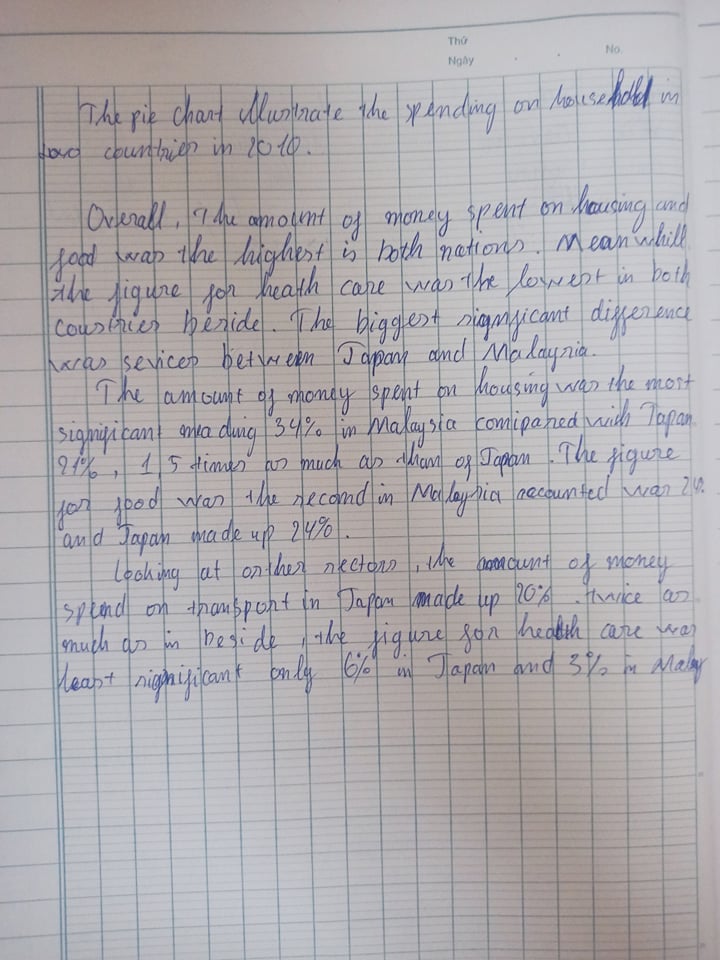 Thứ
Ngày
No.
The pie chart illustrate the spending on household in
two countries in 2010.
Overall, The amount of money spent on housing and
food was the highest is both nations. Meanwhill
the figure for heath care was the lowest in both
countries beside. The biggest significant difference
was sevices between Japan and Malaysia.
The amount of money spent on housing was the most
significant meading 34% in Malaysia compared with Japan
21%, 1,5 times as much as than of Japan. The figure
for food was the second in Malaysia accounted was
and Japan made up 24%.
Looking at orther sectors, the amount of money
spend on transport in Japan made up 20%. twice as
much as in beside, the figure for health care was
least significant only 6% in Japan and 3% in Malay